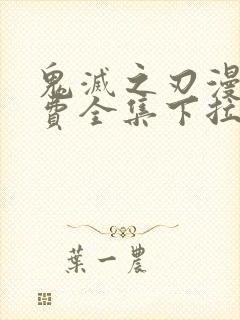 鬼滅之刃漫
費全集下拉
葉一農